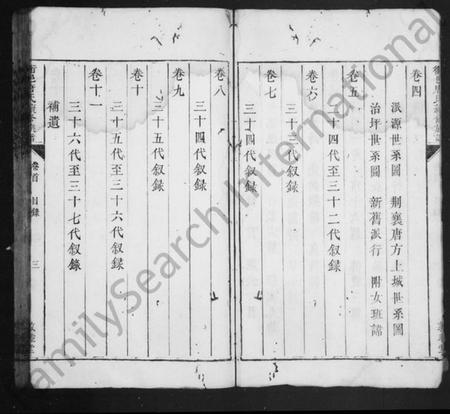 卷四
派源世系圖 荆襄唐方上城世系圖
治坪世系圖 新舊派行 附女班諱
卷五
十四代至三十二代叙录
卷六
三十三代叙录
卷七
三十四代叙录
卷八
三十四代叙録
卷九
三十五代叙録
卷十
三十五代至三十六代叙録
卷十一
三十六代至三十七代叙錄
補遺
卷首 目錄 三
FamilySearch International